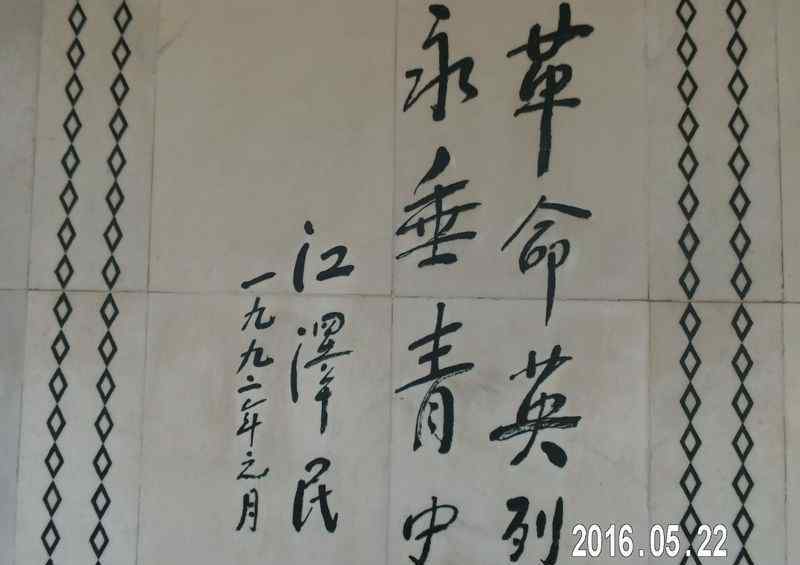 革命英烈
永垂青史
江澤民
一九九二年元月
2016.05.22